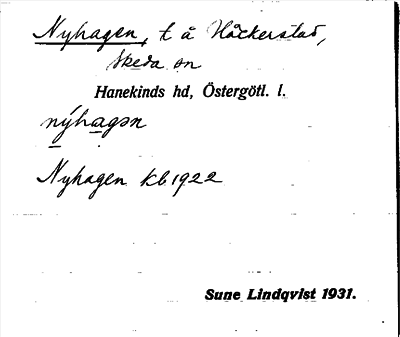 Nyhagen, t å Håckerstad,
Skeda sn
Hanekinds hd, Östergötl. l.
nýhagən
Nyhagen kb 1922
Sune Lindqvist 1931.